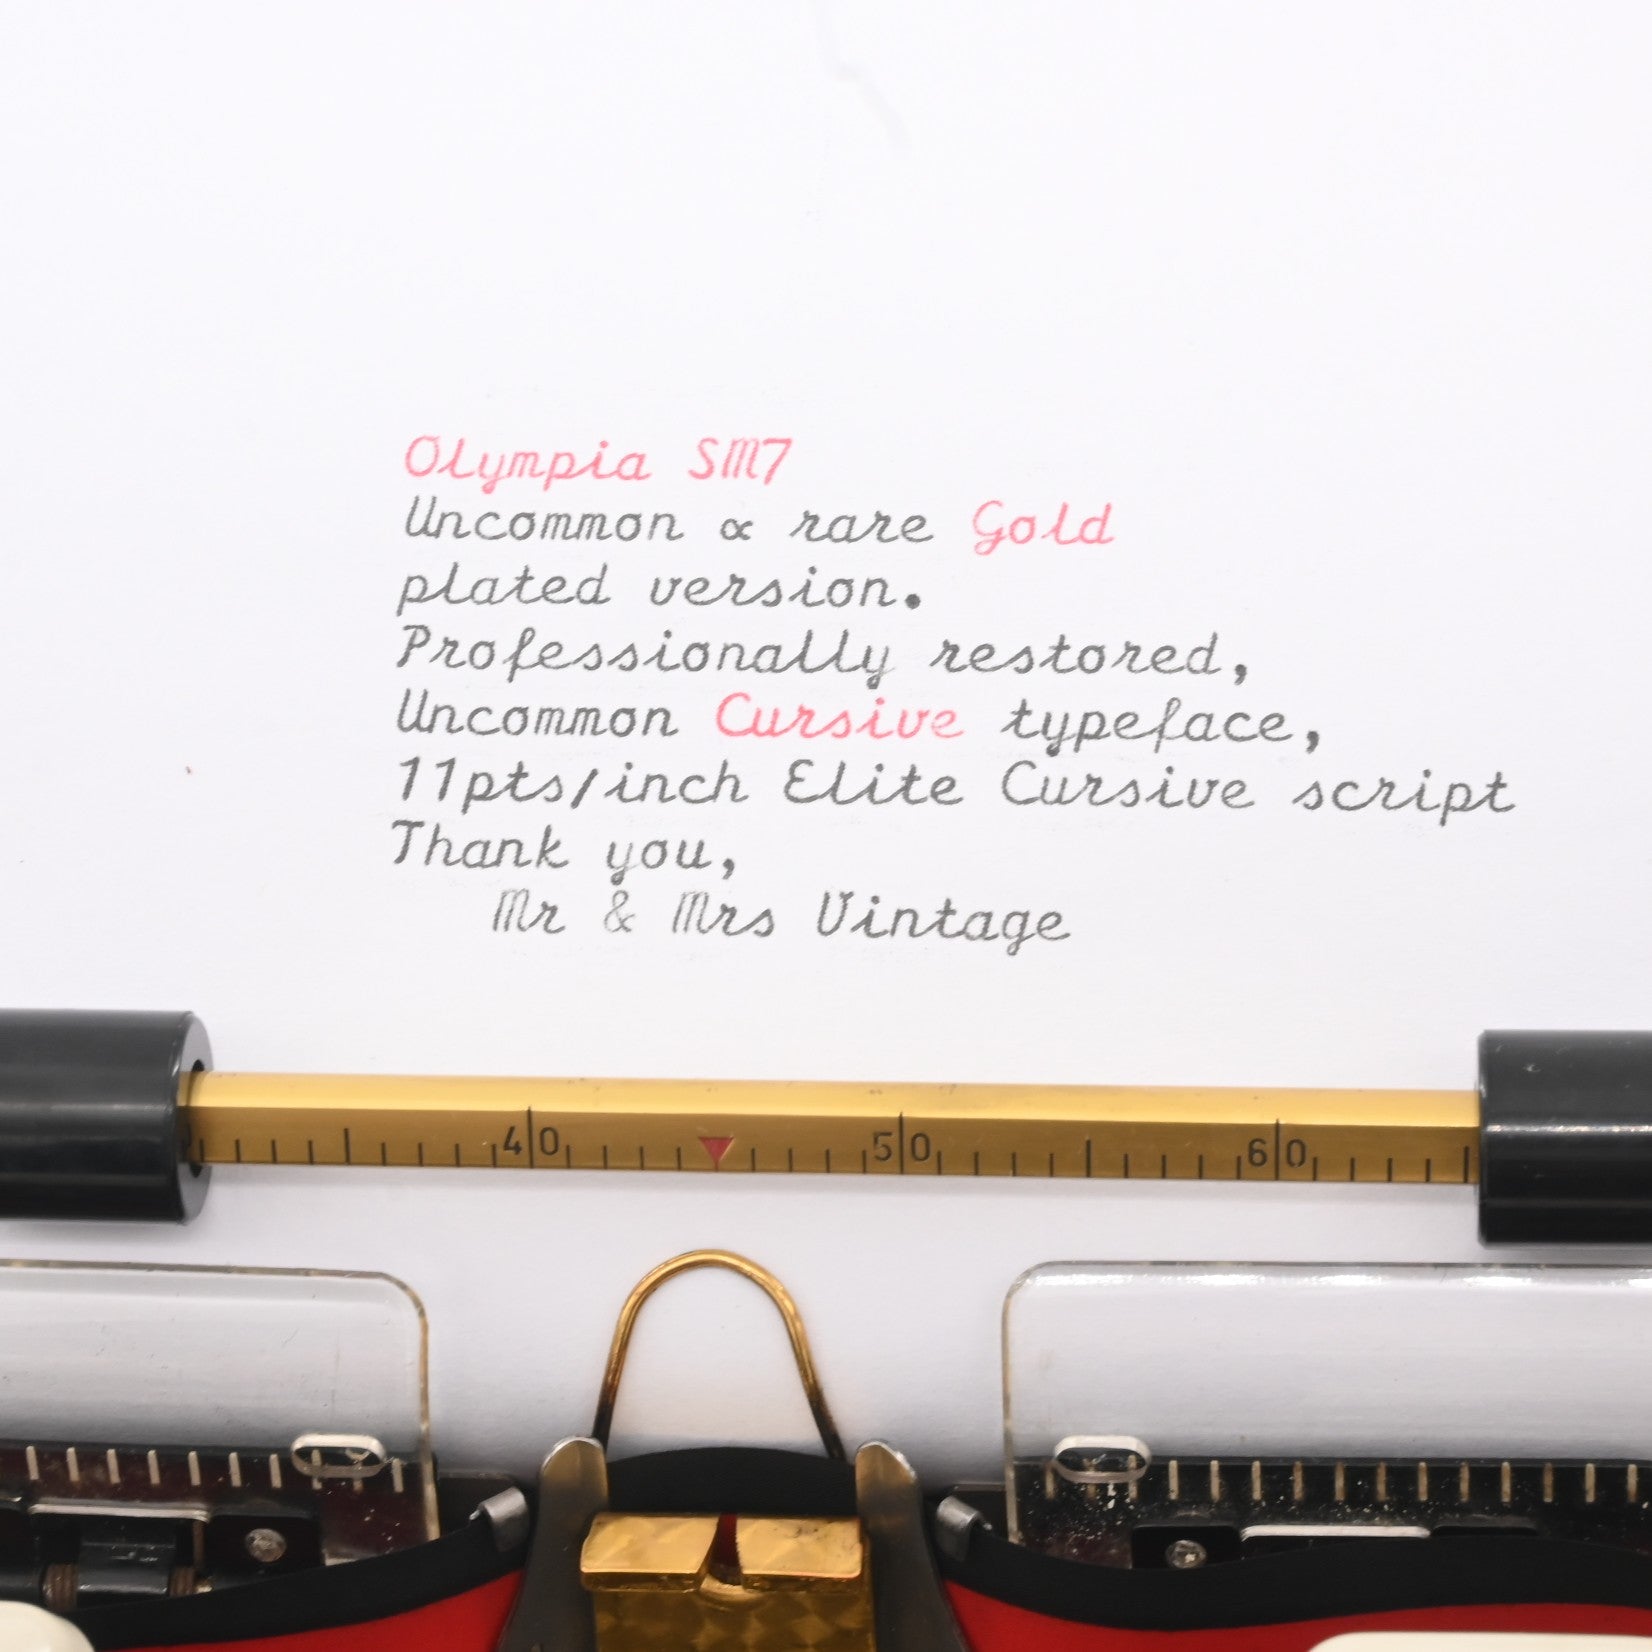 Olympia SM7
Uncommon & rare Gold
plated version.
Professionally restored,
Uncommon Cursive typeface,
11pts/inch Elite Cursive script
Thank you,
Mr & Mrs Vintage
40 50 60